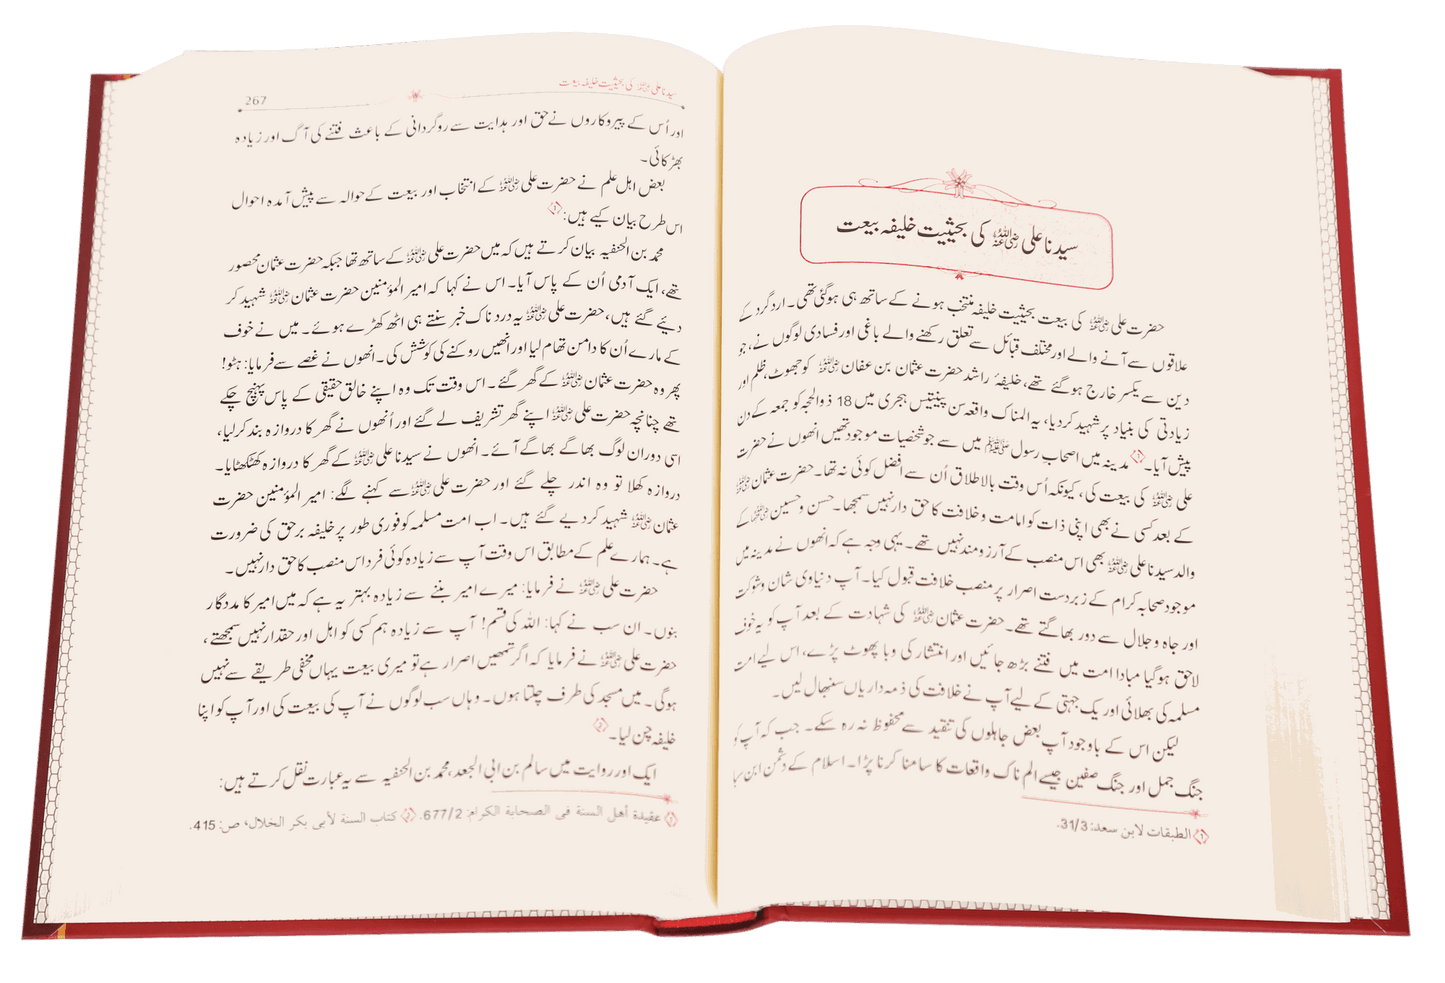 سیدنا علی رضی اللہ عنہ کی بحیثیت خلیفہ بیعت
حضرت علی رضی اللہ عنہ کی بیعت بحیثیت خلیفہ منتخب ہونے کے ساتھ ہی ہوگئی تھی۔ اردگرد کے
علاقوں سے آنے والے اور مختلف قبائل سے تعلق رکھنے والے باغی اور فسادی لوگوں نے، جو
دین سے یکسر خارج ہو گئے تھے، خلیفہٗ راشد حضرت عثمان بن عفان رضی اللہ عنہ کو جھوٹ، ظلم اور
زیادتی کی بنیاد پر شہید کر دیا، یہ المناک واقعہ سن پینتیس ہجری میں 18 ذوالحجہ کو جمعہ کے دن
پیش آیا۔ ① مدینہ میں اصحاب رسول ﷺ میں سے جو شخصیات موجود تھیں انھوں نے حضرت
علی رضی اللہ عنہ کی بیعت کی، کیونکہ اُس وقت بالاطلاق اُن سے افضل کوئی نہ تھا۔ حضرت عثمان رضی اللہ عنہ
کے بعد کسی نے بھی اپنی ذات کو امامت و خلافت کا حق دار نہیں سمجھا۔ حسن و حسین رضی اللہ عنہما کے
والد سیدنا علی رضی اللہ عنہ بھی اس منصب کے آرزو مند نہیں تھے۔ یہی وجہ ہے کہ انھوں نے مدینہ میں
موجود صحابہ کرام کے زبردست اصرار پر منصب خلافت قبول کیا۔ آپ دنیاوی شان و شوکت
اور جاہ و جلال سے دور بھاگتے تھے۔ حضرت عثمان رضی اللہ عنہ کی شہادت کے بعد آپ کو یہ خوف
لاحق ہوگیا مبادا امت میں فتنے بڑھ جائیں اور انتشار کی وبا پھوٹ پڑے، اس لیے امت
مسلمہ کی بھلائی اور یک جہتی کے لیے آپ نے خلافت کی ذمہ داریاں سنبھال لیں۔
لیکن اس کے باوجود آپ بعض جاہلوں کی تنقید سے محفوظ نہ رہ سکے۔ جب کہ آپ کو
جنگ جمل اور جنگ صفین جیسے الم ناک واقعات کا سامنا کرنا پڑا۔ اسلام کے دشمن ابن سبا
① الطبقات لابن سعد: 31/3.
سیدنا علی رضی اللہ عنہ کی بحیثیت خلیفہ بیعت
267
اور اُس کے پیروکاروں نے حق اور ہدایت سے روگردانی کے باعث فتنے کی آگ اور زیادہ
بھڑکائی۔
بعض اہل علم نے حضرت علی رضی اللہ عنہ کے انتخاب اور بیعت کے حوالہ سے پیش آمدہ احوال
اس طرح بیان کیے ہیں: ①
محمد بن الحنفیہ بیان کرتے ہیں کہ میں حضرت علی رضی اللہ عنہ کے ساتھ تھا جبکہ حضرت عثمان محصور
تھے، ایک آدمی اُن کے پاس آیا۔ اس نے کہا کہ امیر المؤمنین حضرت عثمان رضی اللہ عنہ شہید کر
دئیے گئے ہیں، حضرت علی رضی اللہ عنہ یہ درد ناک خبر سنتے ہی اٹھ کھڑے ہوئے۔ میں نے خوف
کے مارے اُن کا دامن تھام لیا اور انھیں روکنے کی کوشش کی۔ انھوں نے غصے سے فرمایا: ہٹو!
پھر وہ حضرت عثمان رضی اللہ عنہ کے گھر گئے۔ اس وقت تک وہ اپنے خالق حقیقی کے پاس پہنچ چکے
تھے چنانچہ حضرت علی رضی اللہ عنہ اپنے گھر تشریف لے گئے اور اُنھوں نے گھر کا دروازہ بند کر لیا،
اسی دوران لوگ بھاگے بھاگے آئے۔ انھوں نے سیدنا علی رضی اللہ عنہ کے گھر کا دروازہ کھٹکھٹایا۔
دروازہ کھلا تو وہ اندر چلے گئے اور حضرت علی رضی اللہ عنہ سے کہنے لگے: امیر المؤمنین حضرت
عثمان رضی اللہ عنہ شہید کر دیے گئے ہیں۔ اب امت مسلمہ کو فوری طور پر خلیفہ برحق کی ضرورت
ہے۔ ہمارے علم کے مطابق اس وقت آپ سے زیادہ کوئی فرد اس منصب کا حق دار نہیں۔
حضرت علی رضی اللہ عنہ نے فرمایا: میرے امیر بننے سے زیادہ بہتر یہ ہے کہ میں امیر کا مددگار
بنوں۔ ان سب نے کہا: اللہ کی قسم! آپ سے زیادہ ہم کسی کو اہل اور حقدار نہیں سمجھتے،
حضرت علی رضی اللہ عنہ نے فرمایا کہ اگر تمھیں اصرار ہے تو میری بیعت یہاں مخفی طریقے سے نہیں
ہوگی۔ میں مسجد کی طرف چلتا ہوں۔ وہاں سب لوگوں نے آپ کی بیعت کی اور آپ کو اپنا
خلیفہ چن لیا۔ ②
ایک اور روایت میں سالم بن ابی الجعد، محمد بن الحنفیہ سے یہ عبارت نقل کرتے ہیں:
① عقيدة أهل السنة في الصحابة الكرام: 677/2. ② كتاب السنة لأبي بكر الخلال، ص: 415.